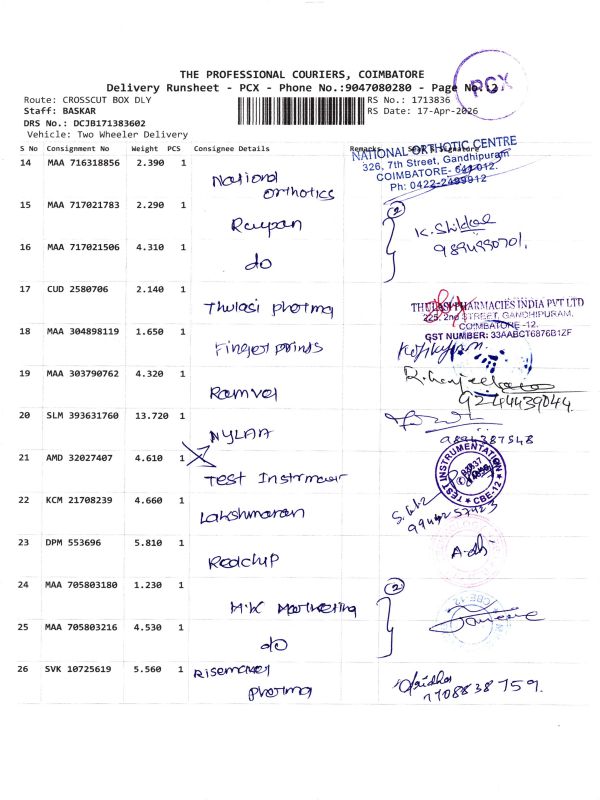 THE PROFESSIONAL COURIERS, COIMBATORE
Delivery Runsheet - PCX - Phone No.:9047080280 - Page No.:2
PCX
Route: CROSSCUT BOX DLY
RS No.: 1713836
Staff: BASKAR
RS Date: 17-Apr-2026
DRS No.: DCJB171383602
Vehicle: Two Wheeler Delivery
S No Consignment No Weight PCS Consignee Details Remarks
NATIONAL ORTHOTIC CENTRE
326, 7th Street, Gandhipuram
COIMBATORE- 641 012.
Ph: 0422-2499912
14 MAA 716318856 2.390 1 National Orthotics
15 MAA 717021783 2.290 1 Raypan
2
16 MAA 717021506 4.310 1 do
17 CUD 2580706 2.140 1 Thulasi pharma
THULASI PHARMACIES INDIA PVT LTD
225, 2nd STREET, GANDHIPURAM,
COIMBATORE -12.
GST NUMBER: 33AABCT6876B1ZF
18 MAA 304898119 1.650 1 Finger prints
19 MAA 303790762 4.320 1 Ramvel
9244439044.
20 SLM 393631760 13.720 1 NYLAA
9894387548
21 AMD 32027407 4.610 1 Test Instrmaer
TEST INSTRUMENTATION
CBE-12
22 KCM 21708239 4.660 1 Lakshmanan
9944257423
23 DPM 553696 5.810 1 Redchip
24 MAA 705803180 1.230 1 M.K Marketing
2
25 MAA 705803216 4.530 1 do
26 SVK 10725619 5.560 1 pharma
7708838759.